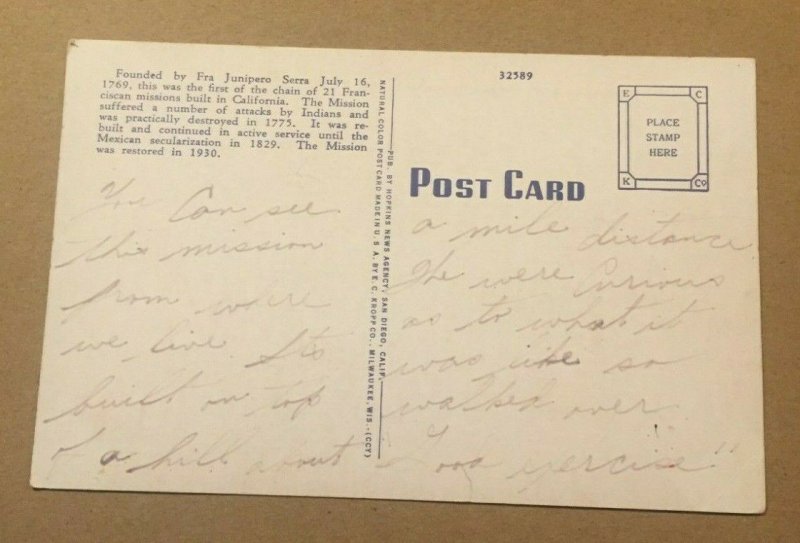 Founded by Fra Junipero Serra July 16,
1769, this was the first of the chain of 21 Fran-
ciscan missions built in California. The Mission
suffered a number of attacks by Indians and
was practically destroyed in 1775. It was re-
built and continued in active service until the
Mexican secularization in 1829. The Mission
was restored in 1930.
You can see
this mission
from where
we live. It's
built on top
of a hill about
NATURAL COLOR POST CARD MADE IN U. S. A. BY E. C. KROPP CO., MILWAUKEE, WIS.-(CCY)
PUB. BY HOPKINS NEWS AGENCY, SAN DIEGO, CALIF.
32589
POST CARD
E C
PLACE
STAMP
HERE
K Co
a mile distance
We were curious
as to what it
was like so
walked over.
Good exercise"